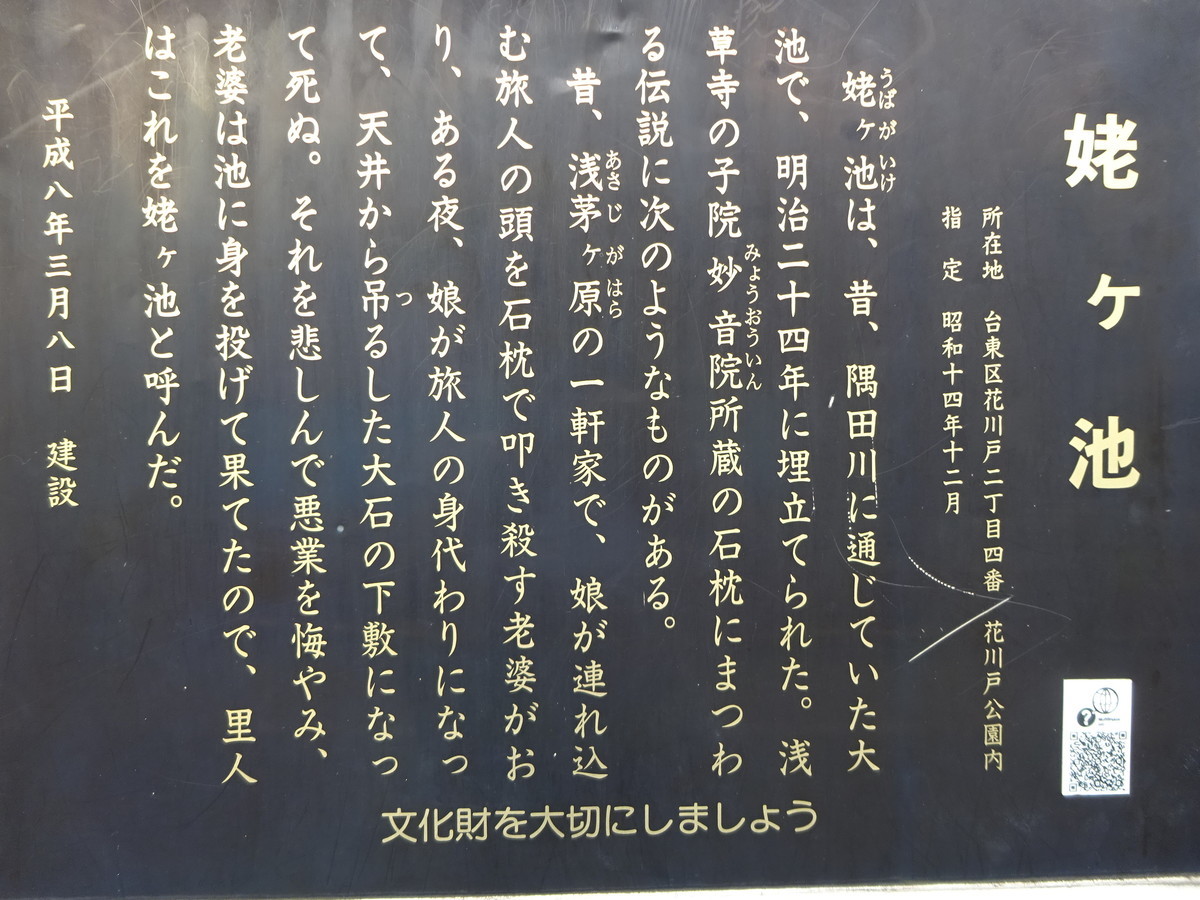 姥ヶ池
所在地　台東区花川戸二丁目四番　花川戸公園内
指　定　昭和十四年十二月
姥ヶ池は、昔、隅田川に通じていた大
うばがいけ
池で、明治二十四年に埋立てられた。浅
草寺の子院妙音院所蔵の石枕にまつわ
みょうおういん
る伝説に次のようなものがある。
昔、浅茅ヶ原の一軒家で、娘が連れ込
あさじがはら
む旅人の頭を石枕で叩き殺す老婆がお
り、ある夜、娘が旅人の身代わりになっ
て、天井から吊るした大石の下敷になっ
つ
て死ぬ。それを悲しんで悪業を悔やみ、
老婆は池に身を投げて果てたので、里人
はこれを姥ヶ池と呼んだ。
平成八年三月八日　建設
文化財を大切にしましょう
?